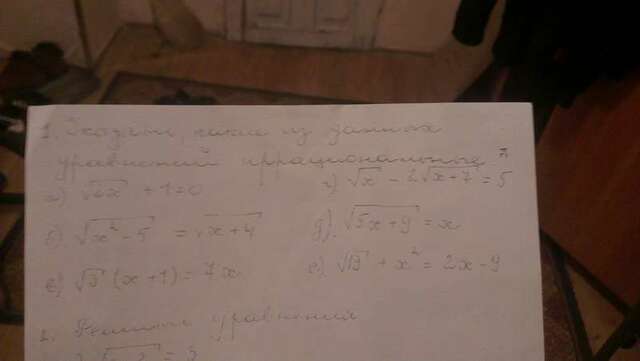 1. Указать, какие из данных
уравнений иррациональные
а) √2x + 1 = 0
г) √x - 2√x+7 = 5
б) √x² - 5 = √x + 4
д) √5x + 9 = x
в) √3 (x + 1) = 7x
е) √19 + x² = 2x - 9
2. Решить уравнения